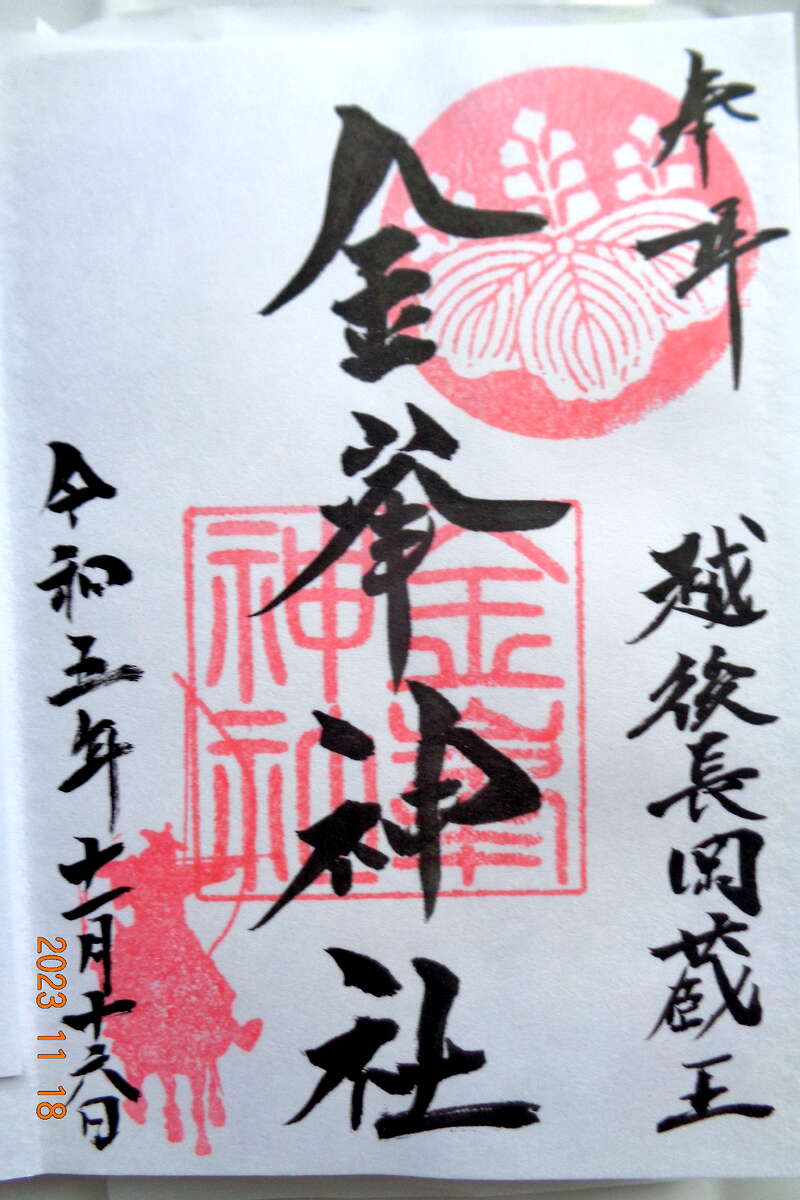 奉拝
越後長岡蔵王
金峯神社
金峯
神社
令和五年十一月十六日
2023 11 18